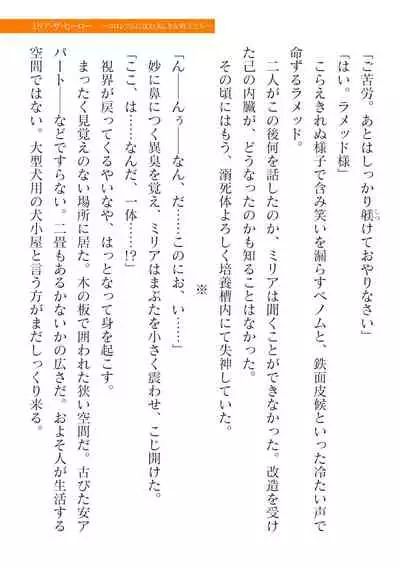 ミリア・ザ・ヒーロー
「ご苦労。あとはしっかり躾けておやりなさい」
「はい。ラメッド様」
こらえきれぬ様子で含み笑いを漏らすペノムと、鉄面皮候といった冷たい声で
命ずるラメッド。
二人がこの後何を話したのか、ミリアは聞くことができなかった。改造を受け
た己の内臓が、どうなったのかも知ることはなかった。
その頃にはもう、溺死体よろしく培養槽内にて失神していた。
※
「ん――んぅ――なん、だ……このにお、い……」
妙に鼻につく異臭を覚え、ミリアはまぶたを小さく震わせ、こじ開けた。
「ここ、は……なんだ、一体……!?」
視界が戻ってくるやいなや、はっとなって身を起こす。
まったく見覚えのない場所に居た。木の板で囲われた狭い空間だ。古びた安ア
パート――などですらない。二畳もあるかないかの広さだ。およそ人が生活する
空間ではない。大型犬用の犬小屋と言う方がまだしっくり来る。